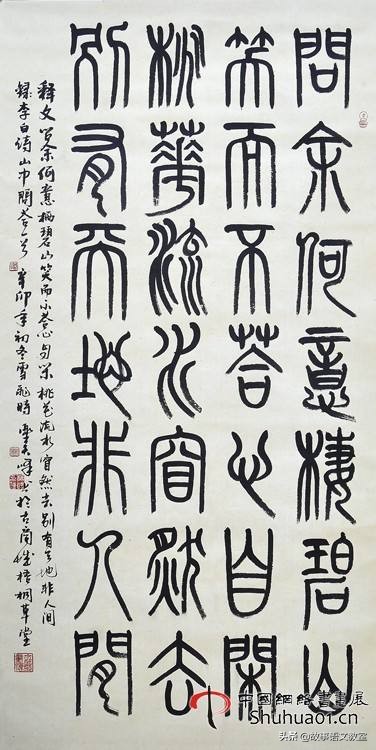 問余何意棲碧山
笑而不荅心自閑
桃華流水窅然去
別有天地非人間
释文 问余何意栖碧山笑而不答心自闲桃花流水窅然去别有天地非人间
録李白诗山中問答一首 辛卯年初冬雪飛時 於古蘭 梧桐草堂
中國網絡書畫展
Shuhua01.cn
头条 @故事语文教室